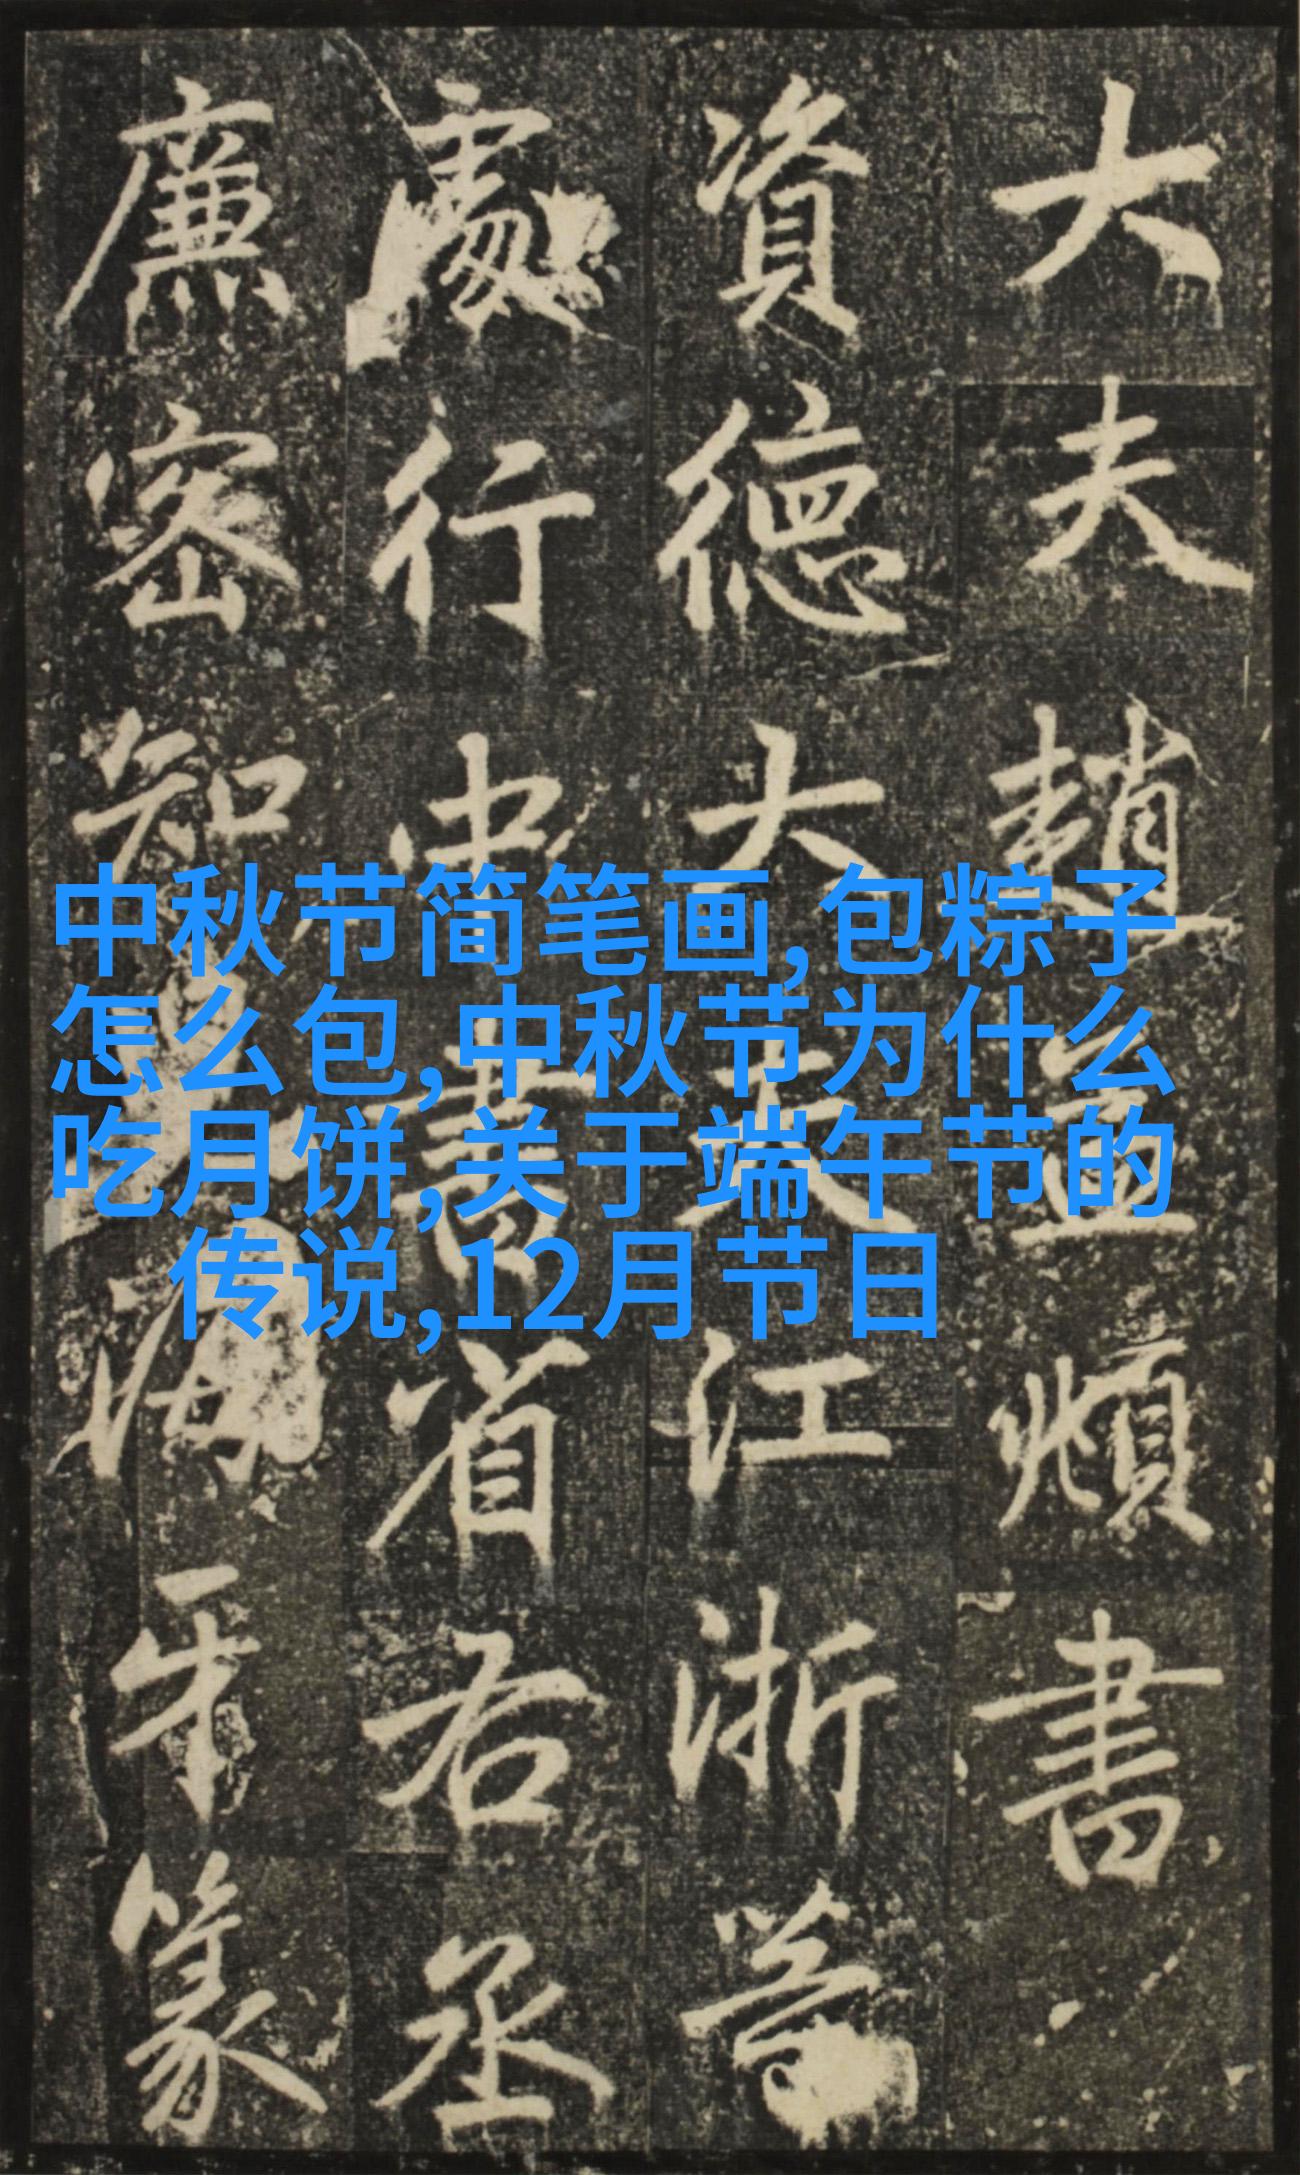 大夫趙孟頫書
資德大夫江浙等
處行中書省右丞
廉密知兒海牙篆
中秋节简笔画,包粽子
怎么包,中秋节为什么
吃月饼,关于端午节的
传说,12月节日